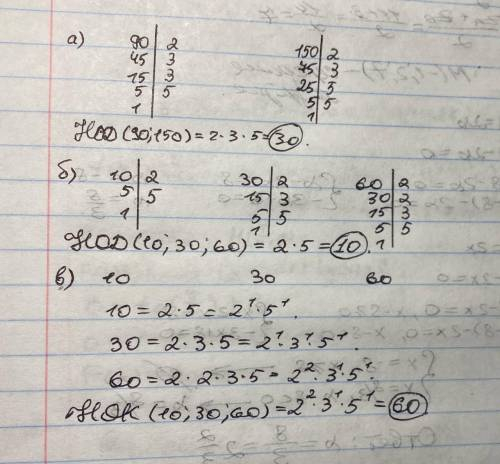 а)
90 | 2   150 | 2
45 | 3   75 | 3
15 | 3   25 | 5
5 | 5   5 | 5
1   1
НОД (90; 150) = 2 · 3 · 5 = 30.
б)
10 | 2   30 | 2   60 | 2
5 | 5   15 | 3   30 | 2
1   5 | 5   15 | 3
1   5 | 5
1
НОД (10; 30; 60) = 2 · 5 = 10.
в) 10   30   60
10 = 2 · 5 = 2¹ · 5¹
30 = 2 · 3 · 5 = 2¹ · 3¹ · 5¹.
60 = 2 · 2 · 3 · 5 = 2² · 3¹ · 5¹.
НОК (10; 30; 60) = 2² · 3¹ · 5¹ = 60